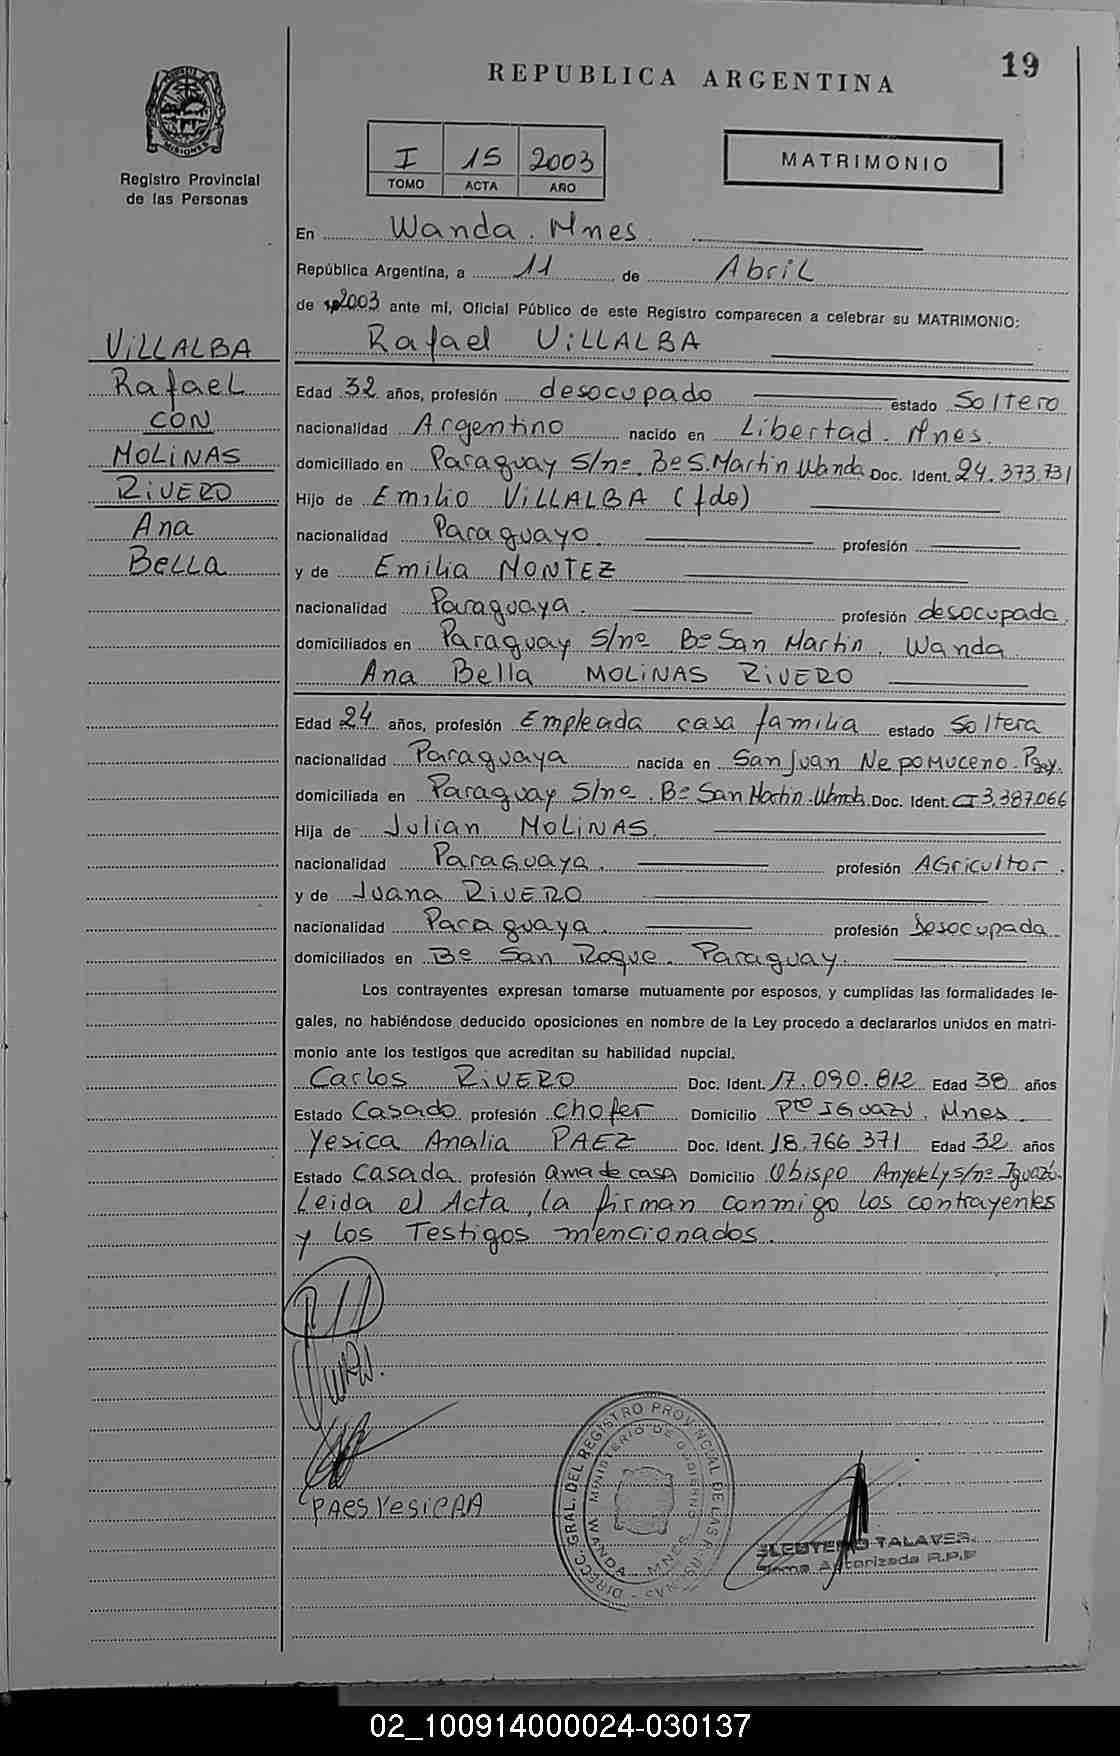 19
REPUBLICA ARGENTINA
MISIONES
Registro Provincial
de las Personas
I 15 2003
TOMO ACTA AÑO
MATRIMONIO
VILLALBA
Rafael
CON
MOLINAS
RIVERO
Ana
Bella
En Wanda. Mnes.
República Argentina, a 11 de Abril
de 2003 ante mí, Oficial Público de este Registro comparecen a celebrar su MATRIMONIO:
Rafael VILLALBA
Edad 32 años, profesión desocupado estado Soltero
nacionalidad Argentino nacido en Libertad. Mnes.
domiciliado en Paraguay S/nº. Bº S. Martin Wanda Doc. Ident. 24.373.731
Hijo de Emilio VILLALBA (fdo)
nacionalidad Paraguayo profesión
y de Emilia MONTEZ
nacionalidad Paraguaya. profesión desocupada.
domiciliados en Paraguay S/nº Bº San Martin. Wanda
Ana Bella MOLINAS RIVERO
Edad 24 años, profesión Empleada casa familia estado Soltera
nacionalidad Paraguaya nacida en San Juan Nepomuceno. Pgy.
domiciliada en Paraguay S/nº. Bº San Martin. Wanda. Doc. Ident. CI 3.387.066
Hija de Julian MOLINAS.
nacionalidad Paraguaya. profesión AGricultor.
y de Juana RIVERO
nacionalidad Paraguaya. profesión Desocupada
domiciliados en Bº San Roque. Paraguay.
Los contrayentes expresan tomarse mutuamente por esposos, y cumplidas las formalidades le-
gales, no habiéndose deducido oposiciones en nombre de la Ley procedo a declararlos unidos en matri-
monio ante los testigos que acreditan su habilidad nupcial.
Carlos RIVERO Doc. Ident. 17.090.812 Edad 38 años
Estado Casado profesión chofer Domicilio Pto IGuazu. Mnes.
Yesica Analia PAEZ Doc. Ident. 18.766.371 Edad 32 años
Estado Casada profesión ama de casa Domicilio Obispo Anyekely s/nº Iguazú.
Leida el Acta, la firman conmigo los contrayentes
y los Testigos mencionados.
PAes YesicAA
DIRECC. GRAL. DEL REGISTRO PROVINCIAL DE LAS PERSONAS
MINISTERIO DE GOBIERNO
WANDA MNES
ELEUTERIO TALAVERA
Firma Autorizada R.P.P
02_100914000024-030137